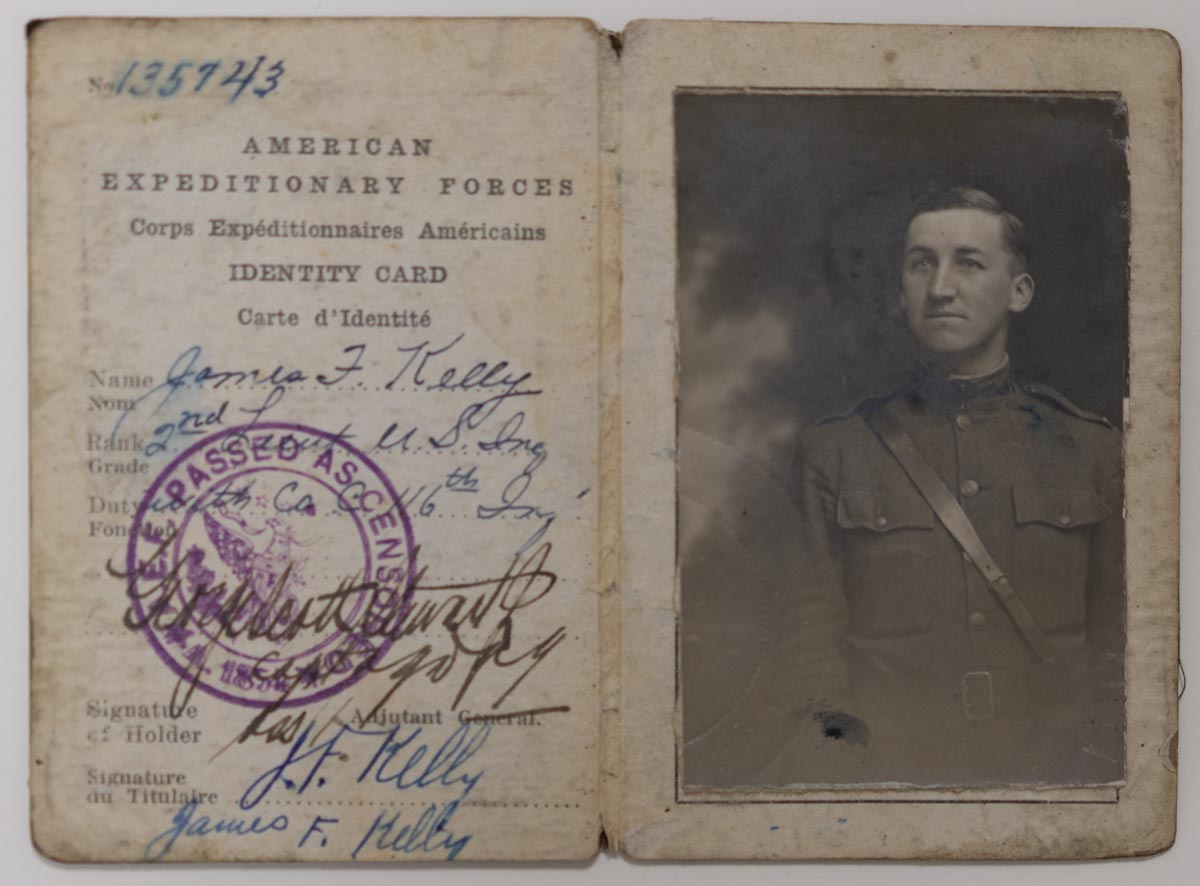 No 135743
AMERICAN
EXPEDITIONARY FORCES
Corps Expéditionnaires Américains
IDENTITY CARD
Carte d'Identité
Name James F. Kelly
Nom
Rank 2nd Lieut U.S. Inf
Grade
Duty with Co C 46th Inf
Fonction
A.E.F. PASSED AS CENSORED
Adjutant General.
Signature
of Holder
J.F. Kelly
Signature
du Titulaire
James F. Kelly